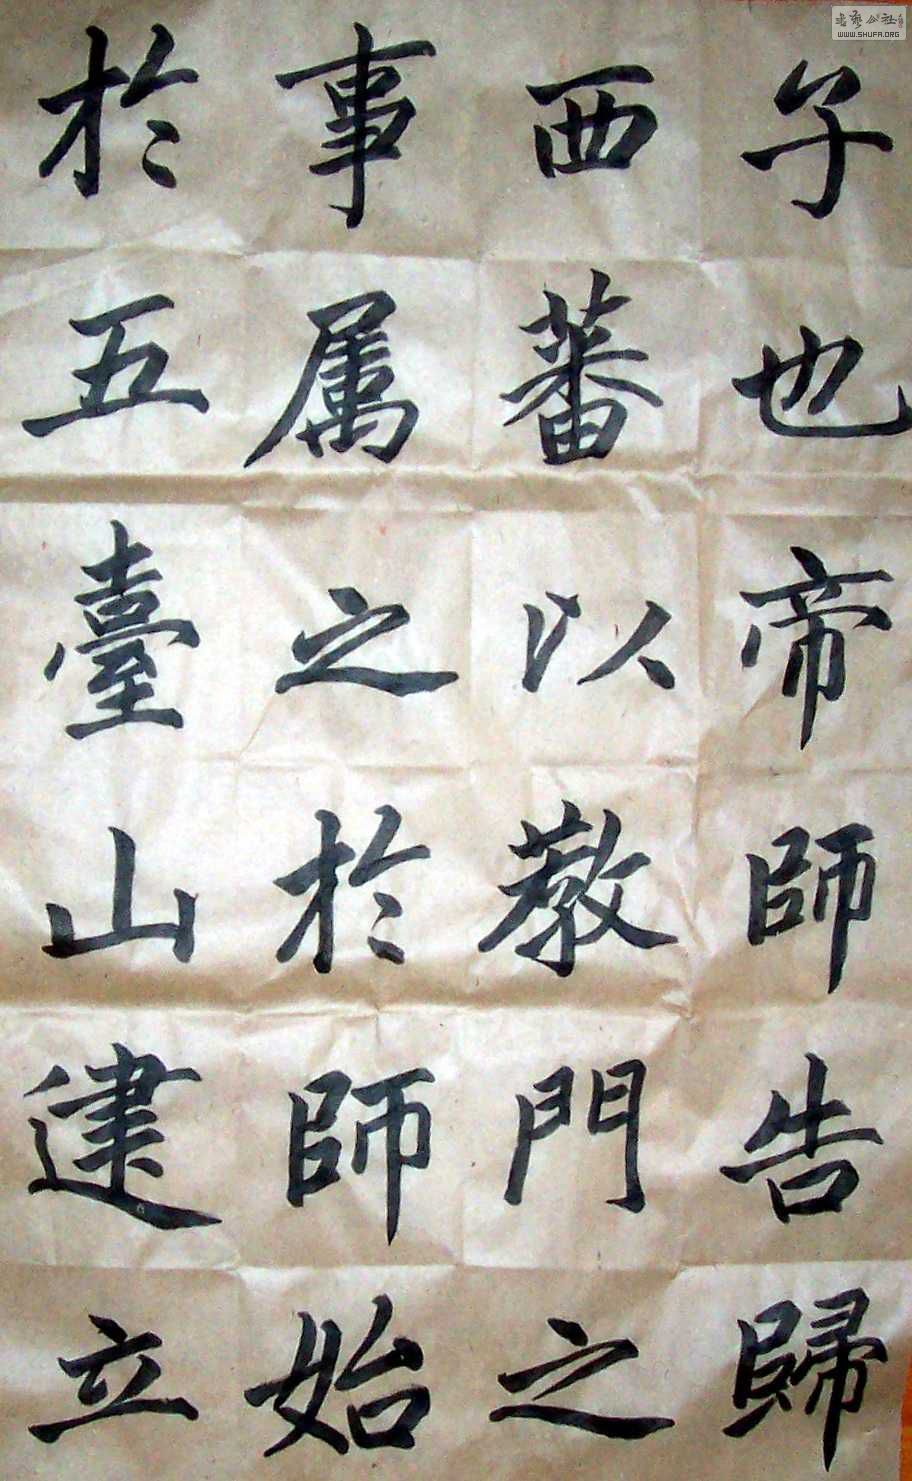 子也帝師告歸
西蕃以教門之
事属之於師始
於五臺山建立
書藝公社
WWW.SHUFA.ORG